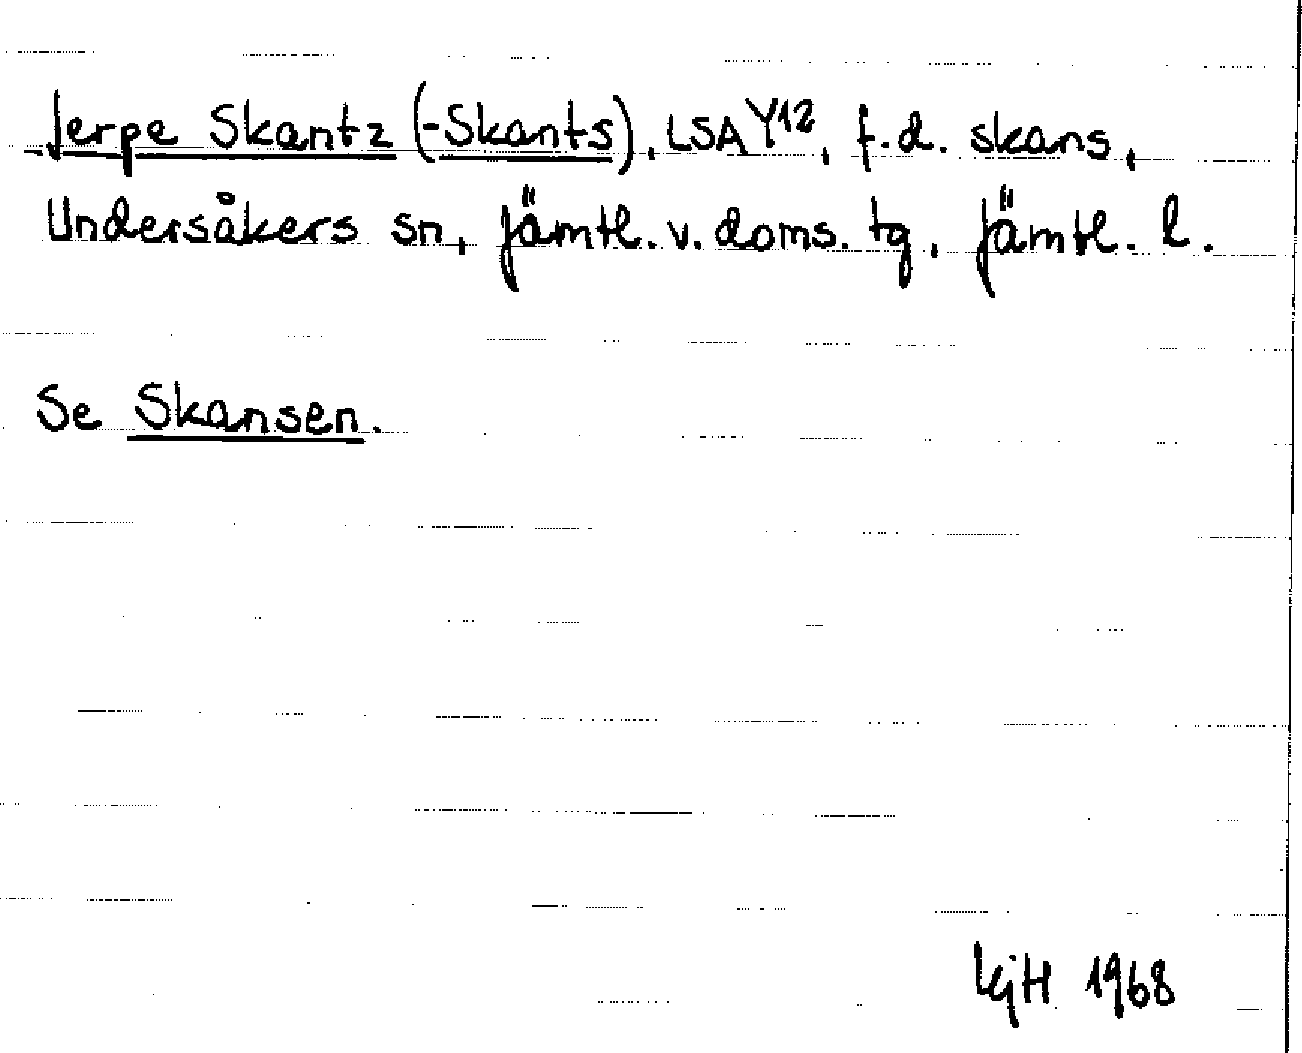 Jerpe Skantz (-Skants), LSA Y12, f.d. skans,
Undersåkers sn, Jämtl. v. doms. tg, Jämtl. l.
Se Skansen.
KjH 1968